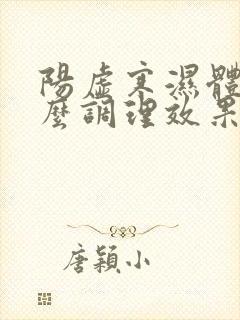 陽虛寒濕體
麼調理效果
唐穎小